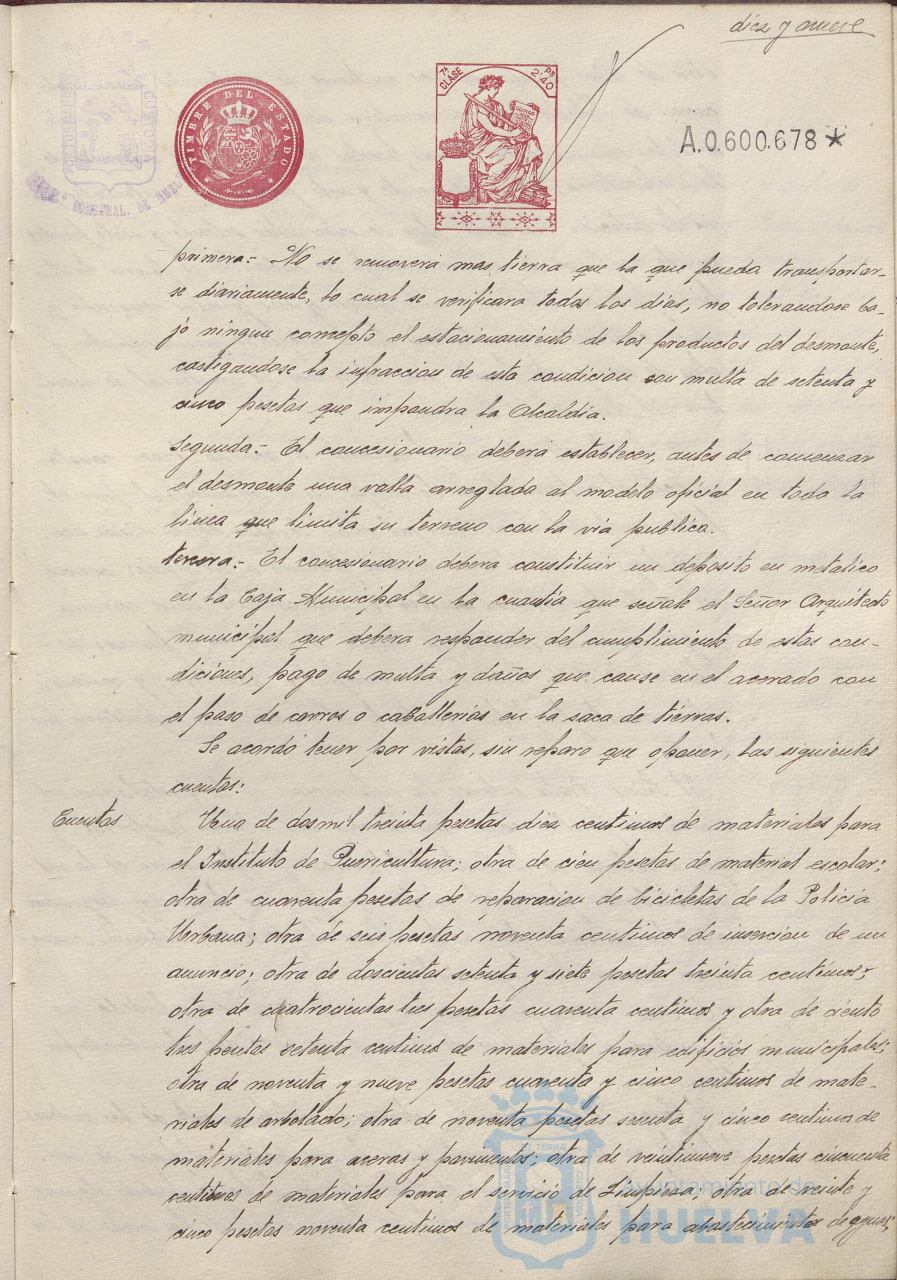 diez y nueve
TIMBRE DEL ESTADO
7ª CLASE
2'40 PS
A.0.600.678*
primera:- No se removera mas tierra que la que pueda transportar-
se diariamente, lo cual se verificara todos los dias, no tolerandose ba-
jo ningun concepto el estacionamiento de los productos del desmonte,
castigandose la infraccion de esta condicion con multa de setenta y
cinco pesetas que impondra la Alcaldia.
Segunda:- El concesionario debera establecer, antes de comenzar
el desmonte una valla arreglada al modelo oficial en toda la
linea que limita su terreno con la via publica.
tercera:- El concesionario debera constituir un deposito en metalico
en la Caja Municipal en la cuantia que señale el Señor Arquitecto
municipal que debera responder del cumplimiento de estas con-
diciones, pago de multa y daños que cause en el acerado con
el paso de carros o caballerias en la saca de tierras.
Se acordó tener por vistas, sin reparo que oponer, las siguientes
cuentas:
Cuentas
Una de dos mil treinta pesetas diez centimos de materiales para
el Instituto de Puericultura; otra de cien pesetas de material escolar;
otra de cuarenta pesetas de reparacion de bicicletas de la Policia
Urbana; otra de seis pesetas noventa centimos de insercion de un
anuncio; otra de doscientas setenta y siete pesetas treinta centimos;
otra de cuatrocientas tres pesetas cuarenta centimos y otra de ciento
tres pesetas setenta centimos de materiales para edificios municipales;
otra de noventa y nueve pesetas cuarenta y cinco centimos de mate-
riales de arbolado; otra de noventa pesetas sesenta y cinco centimos de
materiales para aceras y pavimentos; otra de veintinueve pesetas cincuenta
centimos de materiales para el servicio de Limpieza; otra de veinte y
cinco pesetas noventa centimos de materiales para abastecimientos de aguas;
Ayuntamiento de
HUELVA